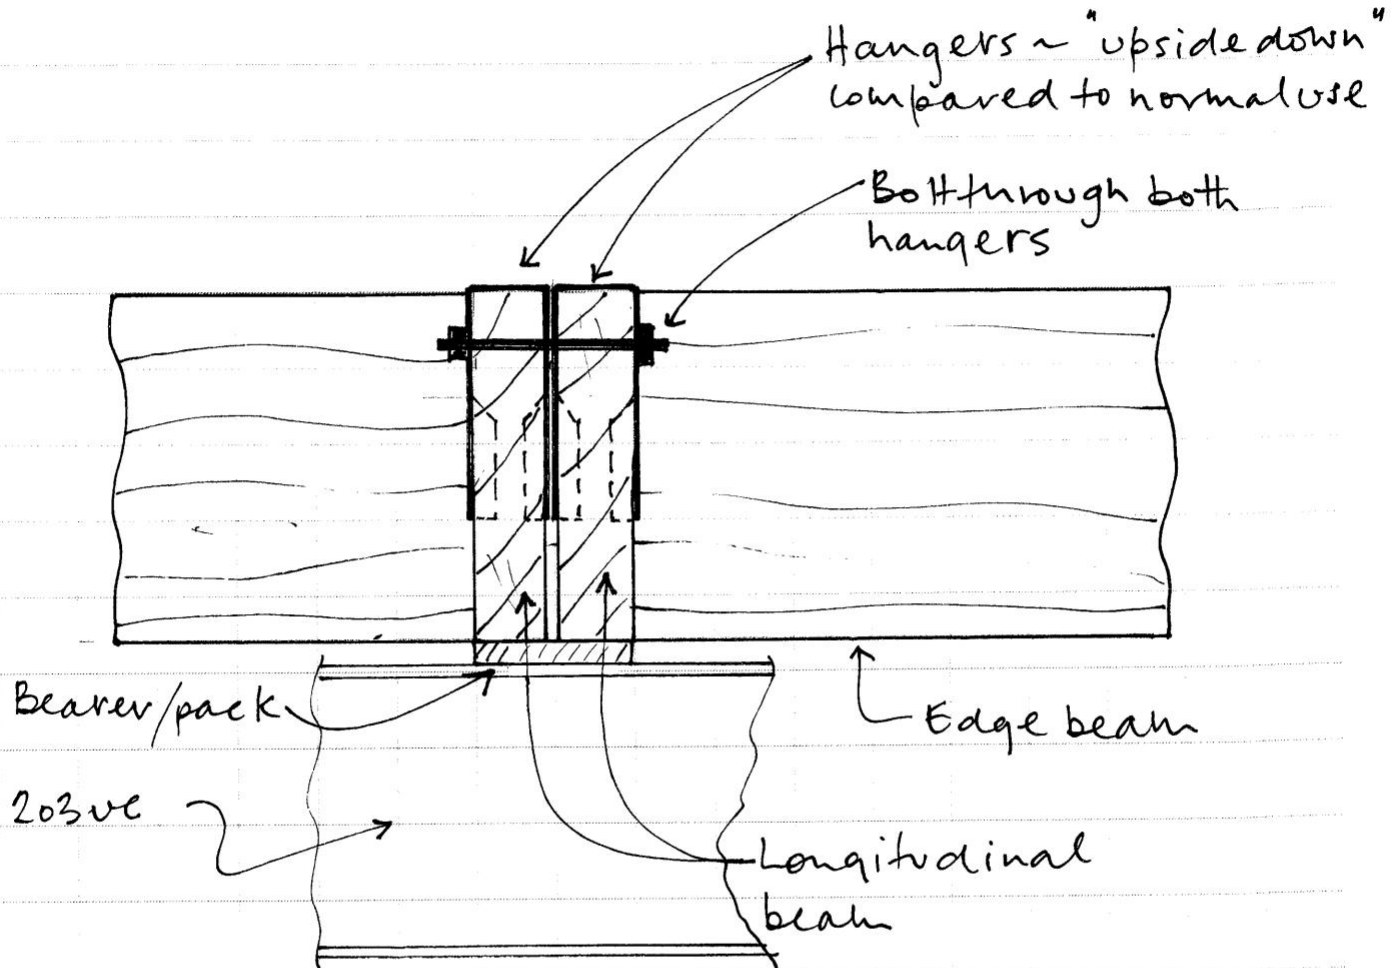 Hangers ~ "upside down"
compared to normal use
Bolt through both
hangers
Bearer/pack
Edge beam
203 UC
Longitudinal
beam